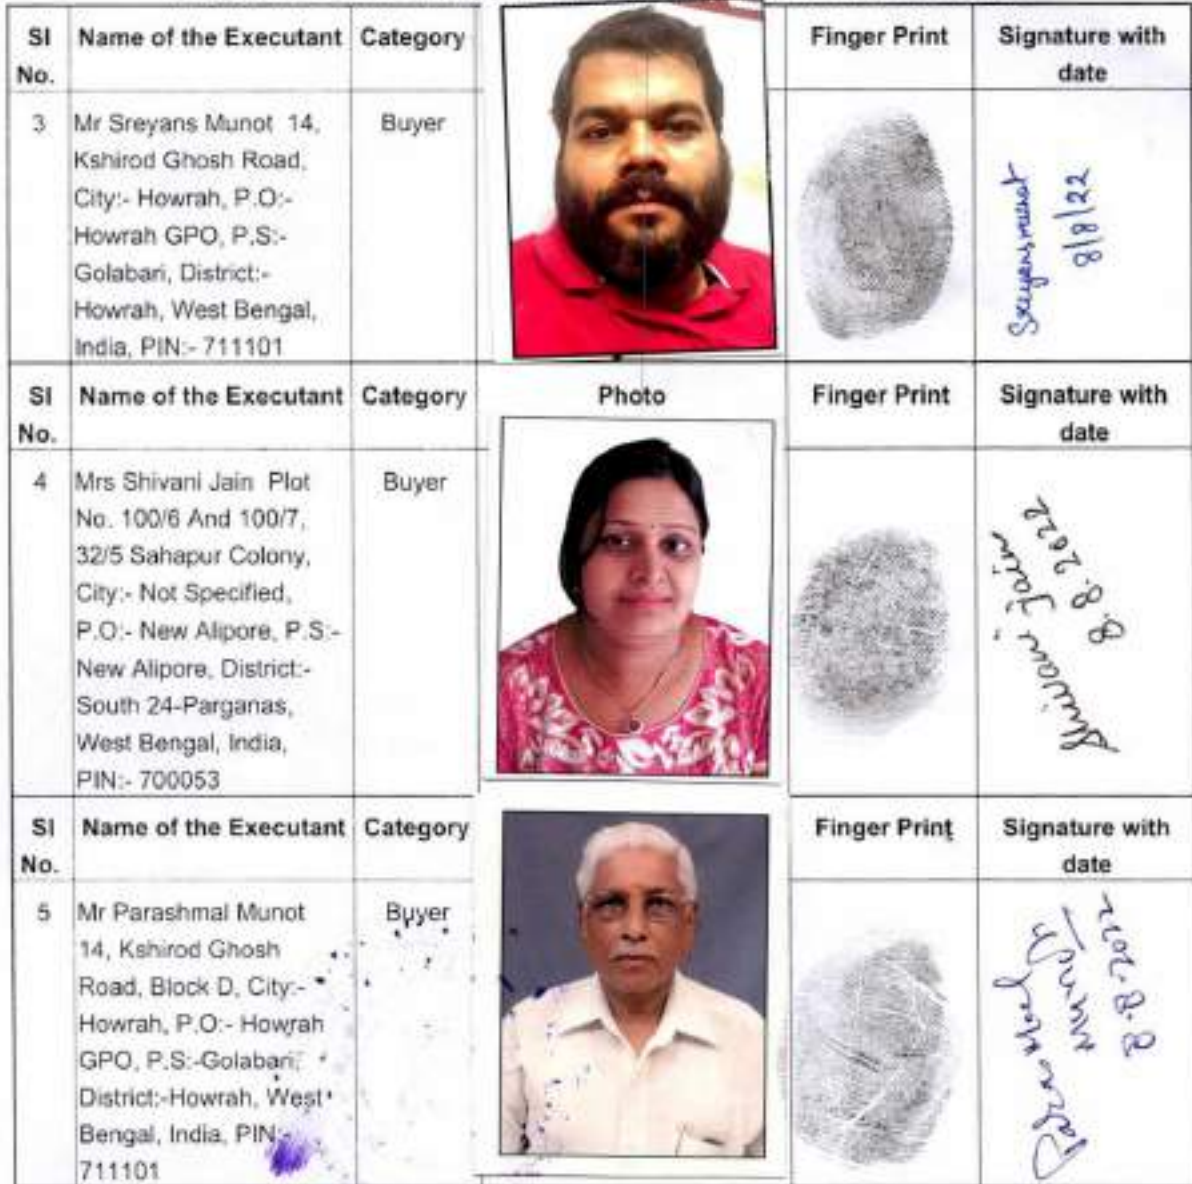 Sl No.
Name of the Executant
Category
Finger Print
Signature with date
3
Mr Sreyans Munot 14,
Kshirod Ghosh Road,
City:- Howrah, P.O:-
Howrah GPO, P.S:-
Golabari, District:-
Howrah, West Bengal,
India, PIN:- 711101
Buyer
Sreyans munot
8/8/22
Sl No.
Name of the Executant
Category
Photo
Finger Print
Signature with date
4
Mrs Shivani Jain Plot
No. 100/6 And 100/7,
32/5 Sahapur Colony,
City:- Not Specified,
P.O:- New Alipore, P.S:-
New Alipore, District:-
South 24-Parganas,
West Bengal, India,
PIN:- 700053
Buyer
Shivani Jain
8.8.2022
Sl No.
Name of the Executant
Category
Finger Print
Signature with date
5
Mr Parashmal Munot
14, Kshirod Ghosh
Road, Block D, City:-
Howrah, P.O:- Howrah
GPO, P.S:-Golabari,
District:-Howrah, West
Bengal, India, PIN:-
711101
Buyer
Munot
8-8-2022